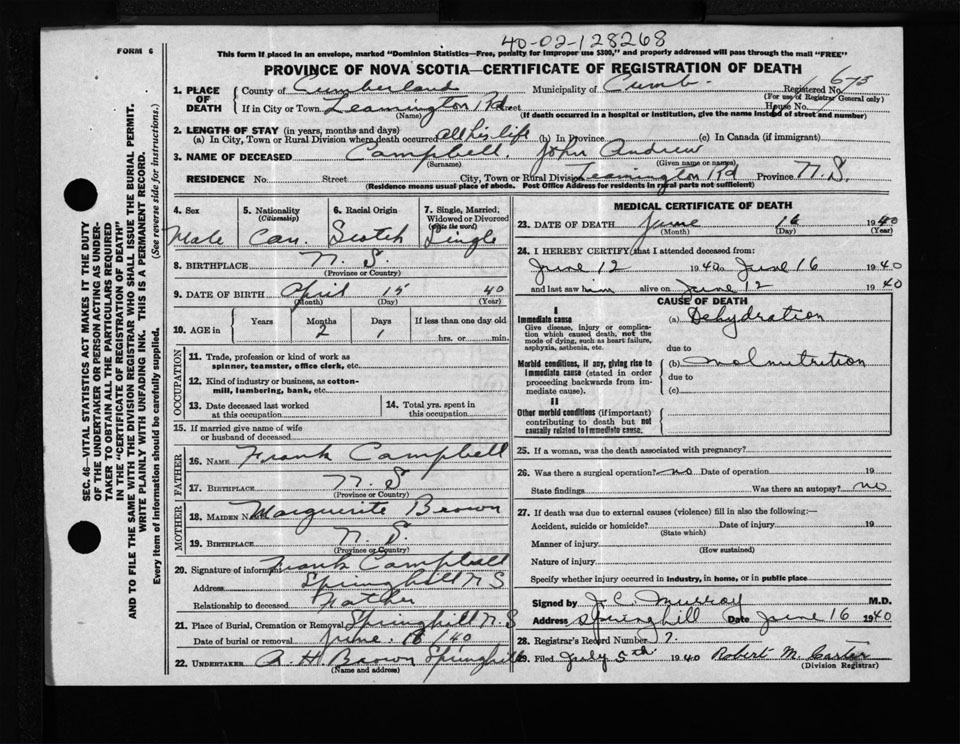 40-02-128268
FORM 6
This form if placed in an envelope, marked "Dominion Statistics—Free, penalty for improper use $300," and properly addressed will pass through the mail "FREE"
PROVINCE OF NOVA SCOTIA—CERTIFICATE OF REGISTRATION OF DEATH
1. PLACE OF DEATH County of Cumberland Municipality of Cumb. Registered No. 675
(For use of Registrar General only)
If in City or Town Leamington Rd Street House No.
(Name) (If death occurred in a hospital or institution, give the name instead of street and number)
2. LENGTH OF STAY (in years, months and days)
(a) In City, Town or Rural Division where death occurred all his life (b) In Province (c) In Canada (if immigrant)
3. NAME OF DECEASED Campbell, John Andrew
(Surname) (Given name or names)
RESIDENCE No. Street City, Town or Rural Division Leamington Rd Province N.S.
(Residence means usual place of abode. Post Office Address for residents in rural parts not sufficient)
4. Sex Male
5. Nationality (Citizenship) Can.
6. Racial Origin Scotch
7. Single, Married, Widowed or Divorced (write the word) Single
8. BIRTHPLACE N. S.
(Province or Country)
9. DATE OF BIRTH April 15 40
(Month) (Day) (Year)
10. AGE in Years Months 2 Days 1 If less than one day old
hrs. or min.
OCCUPATION
11. Trade, profession or kind of work as spinner, teamster, office clerk, etc.
12. Kind of industry or business, as cotton-mill, lumbering, bank, etc.
13. Date deceased last worked at this occupation
14. Total yrs. spent in this occupation
15. If married give name of wife or husband of deceased
FATHER
16. NAME Frank Campbell
17. BIRTHPLACE N. S
(Province or Country)
MOTHER
18. MAIDEN NAME Marguerite Brown
19. BIRTHPLACE N. S.
(Province or Country)
20. Signature of informant Frank Campbell
Address Springhill N S
Relationship to deceased Father
21. Place of Burial, Cremation or Removal Springhill N. S
Date of burial or removal June 18/40
22. UNDERTAKER A. H. Brown Springhill
(Name and address)
MEDICAL CERTIFICATE OF DEATH
23. DATE OF DEATH June 16 1940
(Month) (Day) (Year)
24. I HEREBY CERTIFY that I attended deceased from:
June 12 1940 to June 16 1940
and last saw him alive on June 12 1940
CAUSE OF DEATH
I
Immediate cause (a) Dehydration
Give disease, injury or complication which caused death, not the mode of dying, such as heart failure, asphyxia, asthenia, etc.
due to
Morbid conditions, if any, giving rise to immediate cause (stated in order proceeding backwards from immediate cause). (b) malnutrition
due to
(c)
II
Other morbid conditions (if important) contributing to death but not causally related to immediate cause.
25. If a woman, was the death associated with pregnancy?
26. Was there a surgical operation? no Date of operation 19
State findings Was there an autopsy? no
27. If death was due to external causes (violence) fill in also the following:—
Accident, suicide or homicide? Date of injury 19
(State which)
Manner of injury
(How sustained)
Nature of injury
Specify whether injury occurred in industry, in home, or in public place
Signed by J. C. Murray M.D.
Address Springhill Date June 16 1940
28. Registrar's Record Number 7.
29. Filed July 5th 1940 Robert M. Carter
(Division Registrar)
SEC. 46—VITAL STATISTICS ACT MAKES IT THE DUTY
OF THE UNDERTAKER OR PERSON ACTING AS UNDER-
TAKER TO OBTAIN ALL THE PARTICULARS REQUIRED
IN THE "CERTIFICATE OF REGISTRATION OF DEATH"
AND TO FILE THE SAME WITH THE DIVISION REGISTRAR WHO SHALL ISSUE THE BURIAL PERMIT.
WRITE PLAINLY WITH UNFADING INK. THIS IS A PERMANENT RECORD.
Every item of information should be carefully supplied. (See reverse side for instructions.)